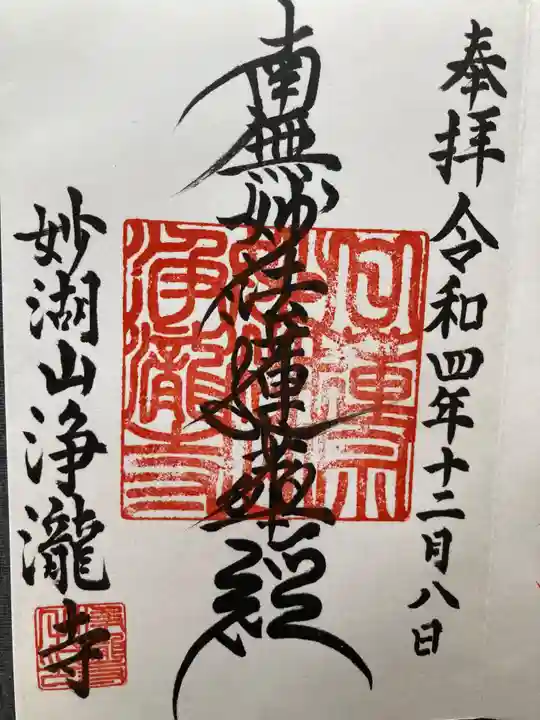 奉拝 令和四年十二月八日
南無妙法蓮華経
妙湖山浄瀧寺